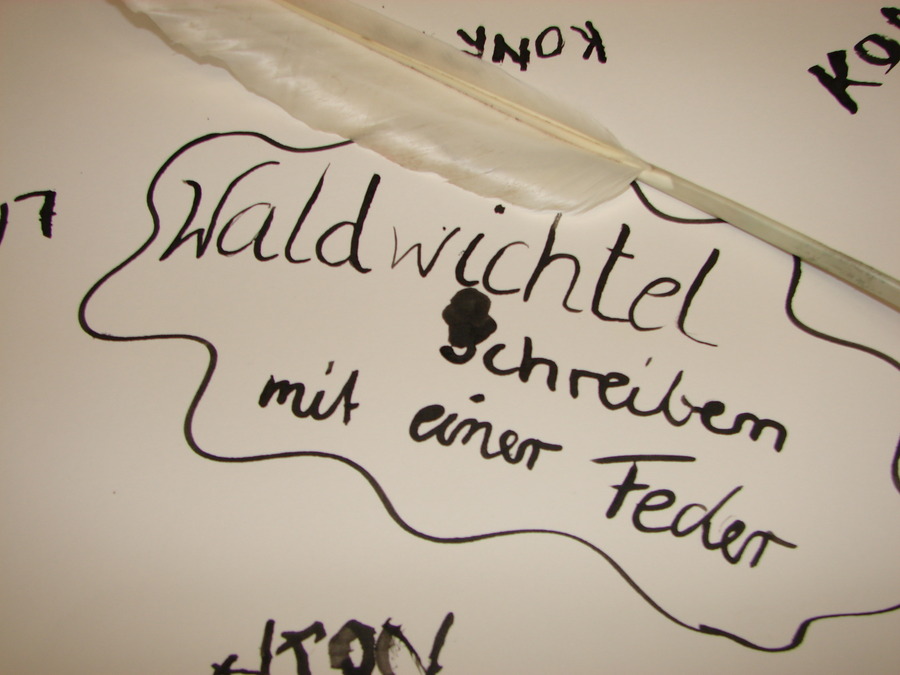 Waldwichtel
schreiben
mit einer Feder